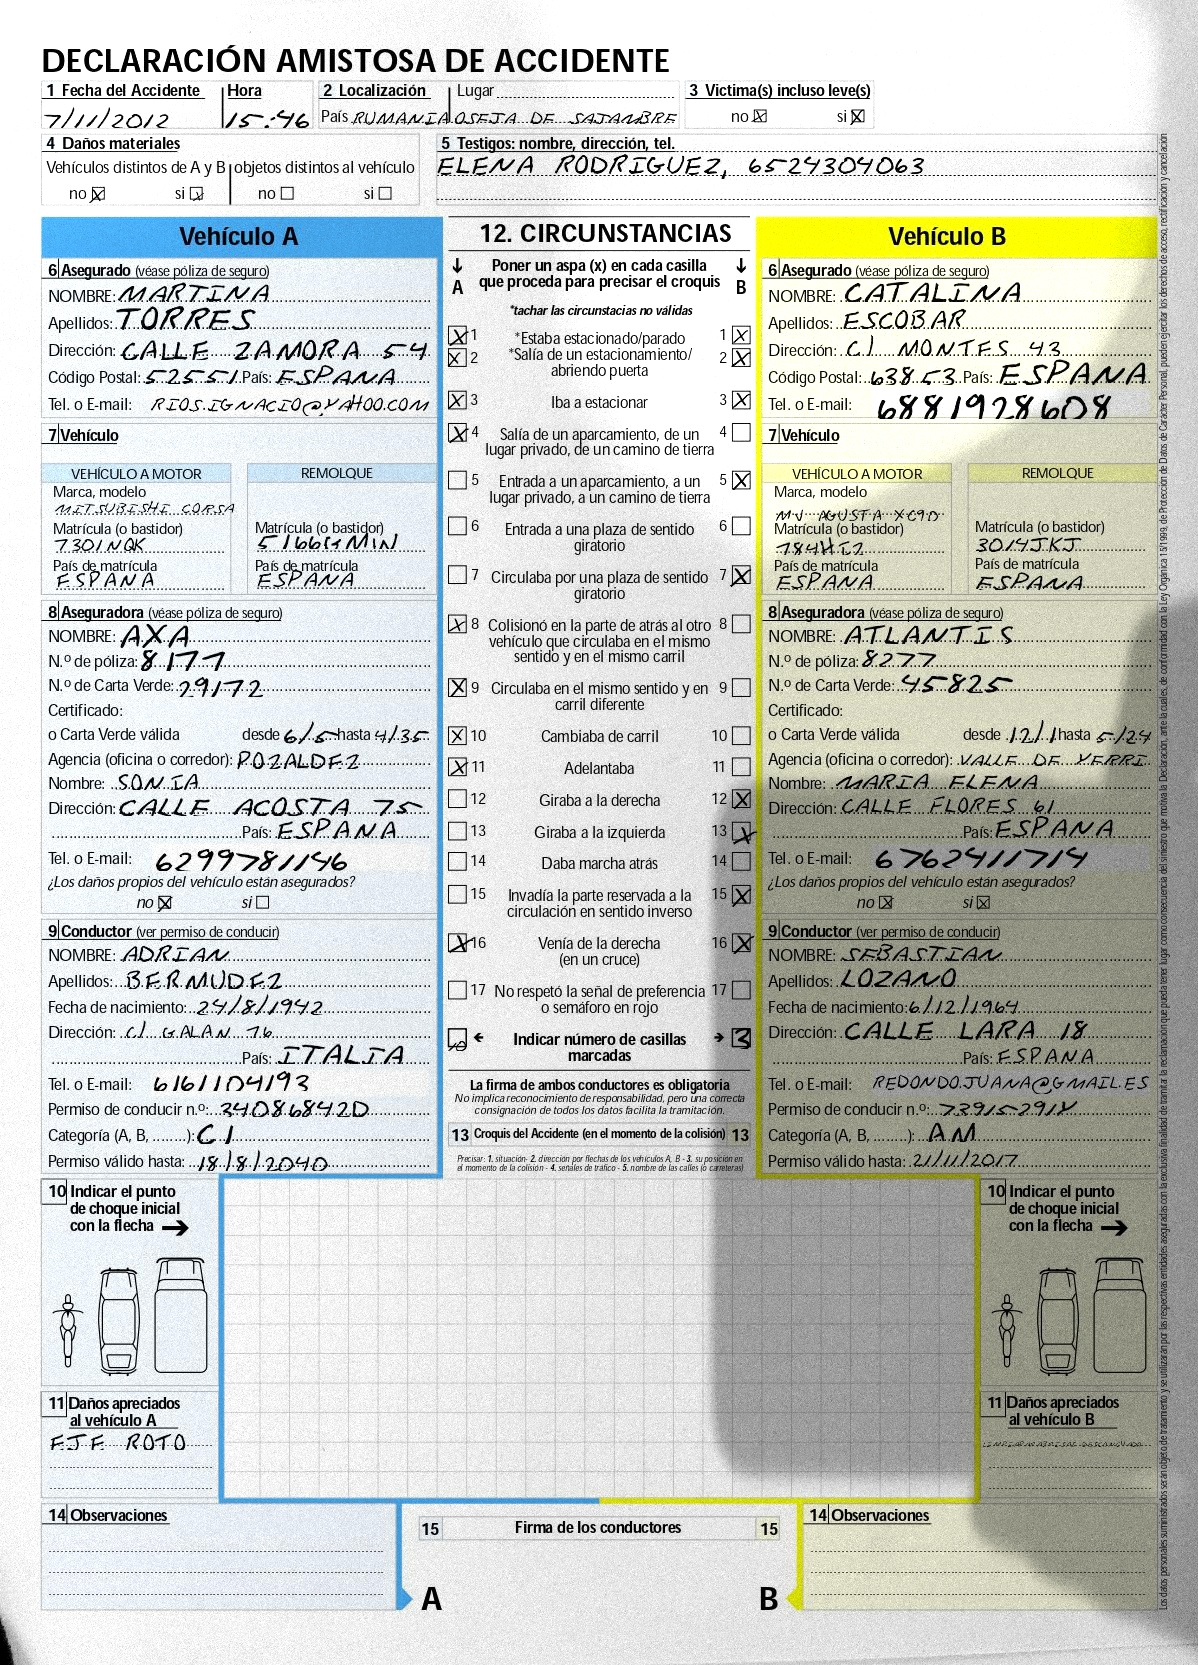 DECLARACIÓN AMISTOSA DE ACCIDENTE
1 Fecha del Accidente Hora 2 Localización Lugar 3 Victima(s) incluso leve(s)
7/11/2012 15:46 País RUMANIA OSEJA DE SAJAMBRE no si
4 Daños materiales 5 Testigos: nombre, dirección, tel.
Vehículos distintos de A y B objetos distintos al vehículo ELENA RODRIGUEZ, 6524304063
no si no si
Vehículo A
6 Asegurado (véase póliza de seguro)
NOMBRE: MARTINA
Apellidos: TORRES
Dirección: CALLE ZAMORA 54
Código Postal: 52551 País: ESPANA
Tel. o E-mail: RIOS.IGNACIO@YAHOO.COM
7 Vehículo
VEHÍCULO A MOTOR REMOLQUE
Marca, modelo
MITSUBISHI CORSA
Matrícula (o bastidor) Matrícula (o bastidor)
7301NQK 5166GMIN
País de matrícula País de matrícula
ESPANA ESPANA
8 Aseguradora (véase póliza de seguro)
NOMBRE: AXA
N.º de póliza: 8177
N.º de Carta Verde: 29172
Certificado:
o Carta Verde válida desde 6/5 hasta 4/35
Agencia (oficina o corredor): POZALDEZ
Nombre: SONIA
Dirección: CALLE ACOSTA 75
País: ESPANA
Tel. o E-mail: 6299781146
¿Los daños propios del vehículo están asegurados?
no si
9 Conductor (ver permiso de conducir)
NOMBRE: ADRIAN
Apellidos: BERMUDEZ
Fecha de nacimiento: 24/8/1942
Dirección: C/ GALAN 76
País: ITALIA
Tel. o E-mail: 6161104193
Permiso de conducir n.º: 34086842D
Categoría (A, B, ........): C1
Permiso válido hasta: 18/8/2040
10 Indicar el punto
de choque inicial
con la flecha
11 Daños apreciados
al vehículo A
EJE ROTO
14 Observaciones
12. CIRCUNSTANCIAS
A Poner un aspa (x) en cada casilla B
que proceda para precisar el croquis
*tachar las circunstacias no válidas
1 *Estaba estacionado/parado 1
2 *Salía de un estacionamiento/ 2
abriendo puerta
3 Iba a estacionar 3
4 Salía de un aparcamiento, de un 4
lugar privado, de un camino de tierra
5 Entrada a un aparcamiento, a un 5
lugar privado, a un camino de tierra
6 Entrada a una plaza de sentido 6
giratorio
7 Circulaba por una plaza de sentido 7
giratorio
8 Colisionó en la parte de atrás al otro 8
vehículo que circulaba en el mismo
sentido y en el mismo carril
9 Circulaba en el mismo sentido y en 9
carril diferente
10 Cambiaba de carril 10
11 Adelantaba 11
12 Giraba a la derecha 12
13 Giraba a la izquierda 13
14 Daba marcha atrás 14
15 Invadía la parte reservada a la 15
circulación en sentido inverso
16 Venía de la derecha 16
(en un cruce)
17 No respetó la señal de preferencia 17
o semáforo en rojo
Indicar número de casillas 3
marcadas
La firma de ambos conductores es obligatoria
No implica reconocimiento de responsabilidad, pero una correcta
consignación de todos los datos facilita la tramitación.
13 Croquis del Accidente (en el momento de la colisión) 13
Precisar: 1. situación- 2. dirección por flechas de los vehículos A, B - 3. su posición en
el momento de la colisión - 4. señales de tráfico - 5. nombre de las calles (o carreteras)
15 Firma de los conductores 15
A B
Vehículo B
6 Asegurado (véase póliza de seguro)
NOMBRE: CATALINA
Apellidos: ESCOBAR
Dirección: C/ MONTES 43
Código Postal: 63853 País: ESPANA
Tel. o E-mail: 6881928608
7 Vehículo
VEHÍCULO A MOTOR REMOLQUE
Marca, modelo
MV AGUSTA XC90
Matrícula (o bastidor) Matrícula (o bastidor)
784HIZ 3014JKJ
País de matrícula País de matrícula
ESPANA ESPANA
8 Aseguradora (véase póliza de seguro)
NOMBRE: ATLANTIS
N.º de póliza: 8277
N.º de Carta Verde: 45825
Certificado:
o Carta Verde válida desde 12/1 hasta 5/24
Agencia (oficina o corredor): VALLE DE YERRI
Nombre: MARIA ELENA
Dirección: CALLE FLORES 61
País: ESPANA
Tel. o E-mail: 6762411714
¿Los daños propios del vehículo están asegurados?
no si
9 Conductor (ver permiso de conducir)
NOMBRE: SEBASTIAN
Apellidos: LOZANO
Fecha de nacimiento: 6/12/1964
Dirección: CALLE LARA 18
País: ESPANA
Tel. o E-mail: REDONDOJUANA@GMAIL.ES
Permiso de conducir n.º: 73915291X
Categoría (A, B, ........): AM
Permiso válido hasta: 21/11/2017
10 Indicar el punto
de choque inicial
con la flecha
11 Daños apreciados
al vehículo B
14 Observaciones